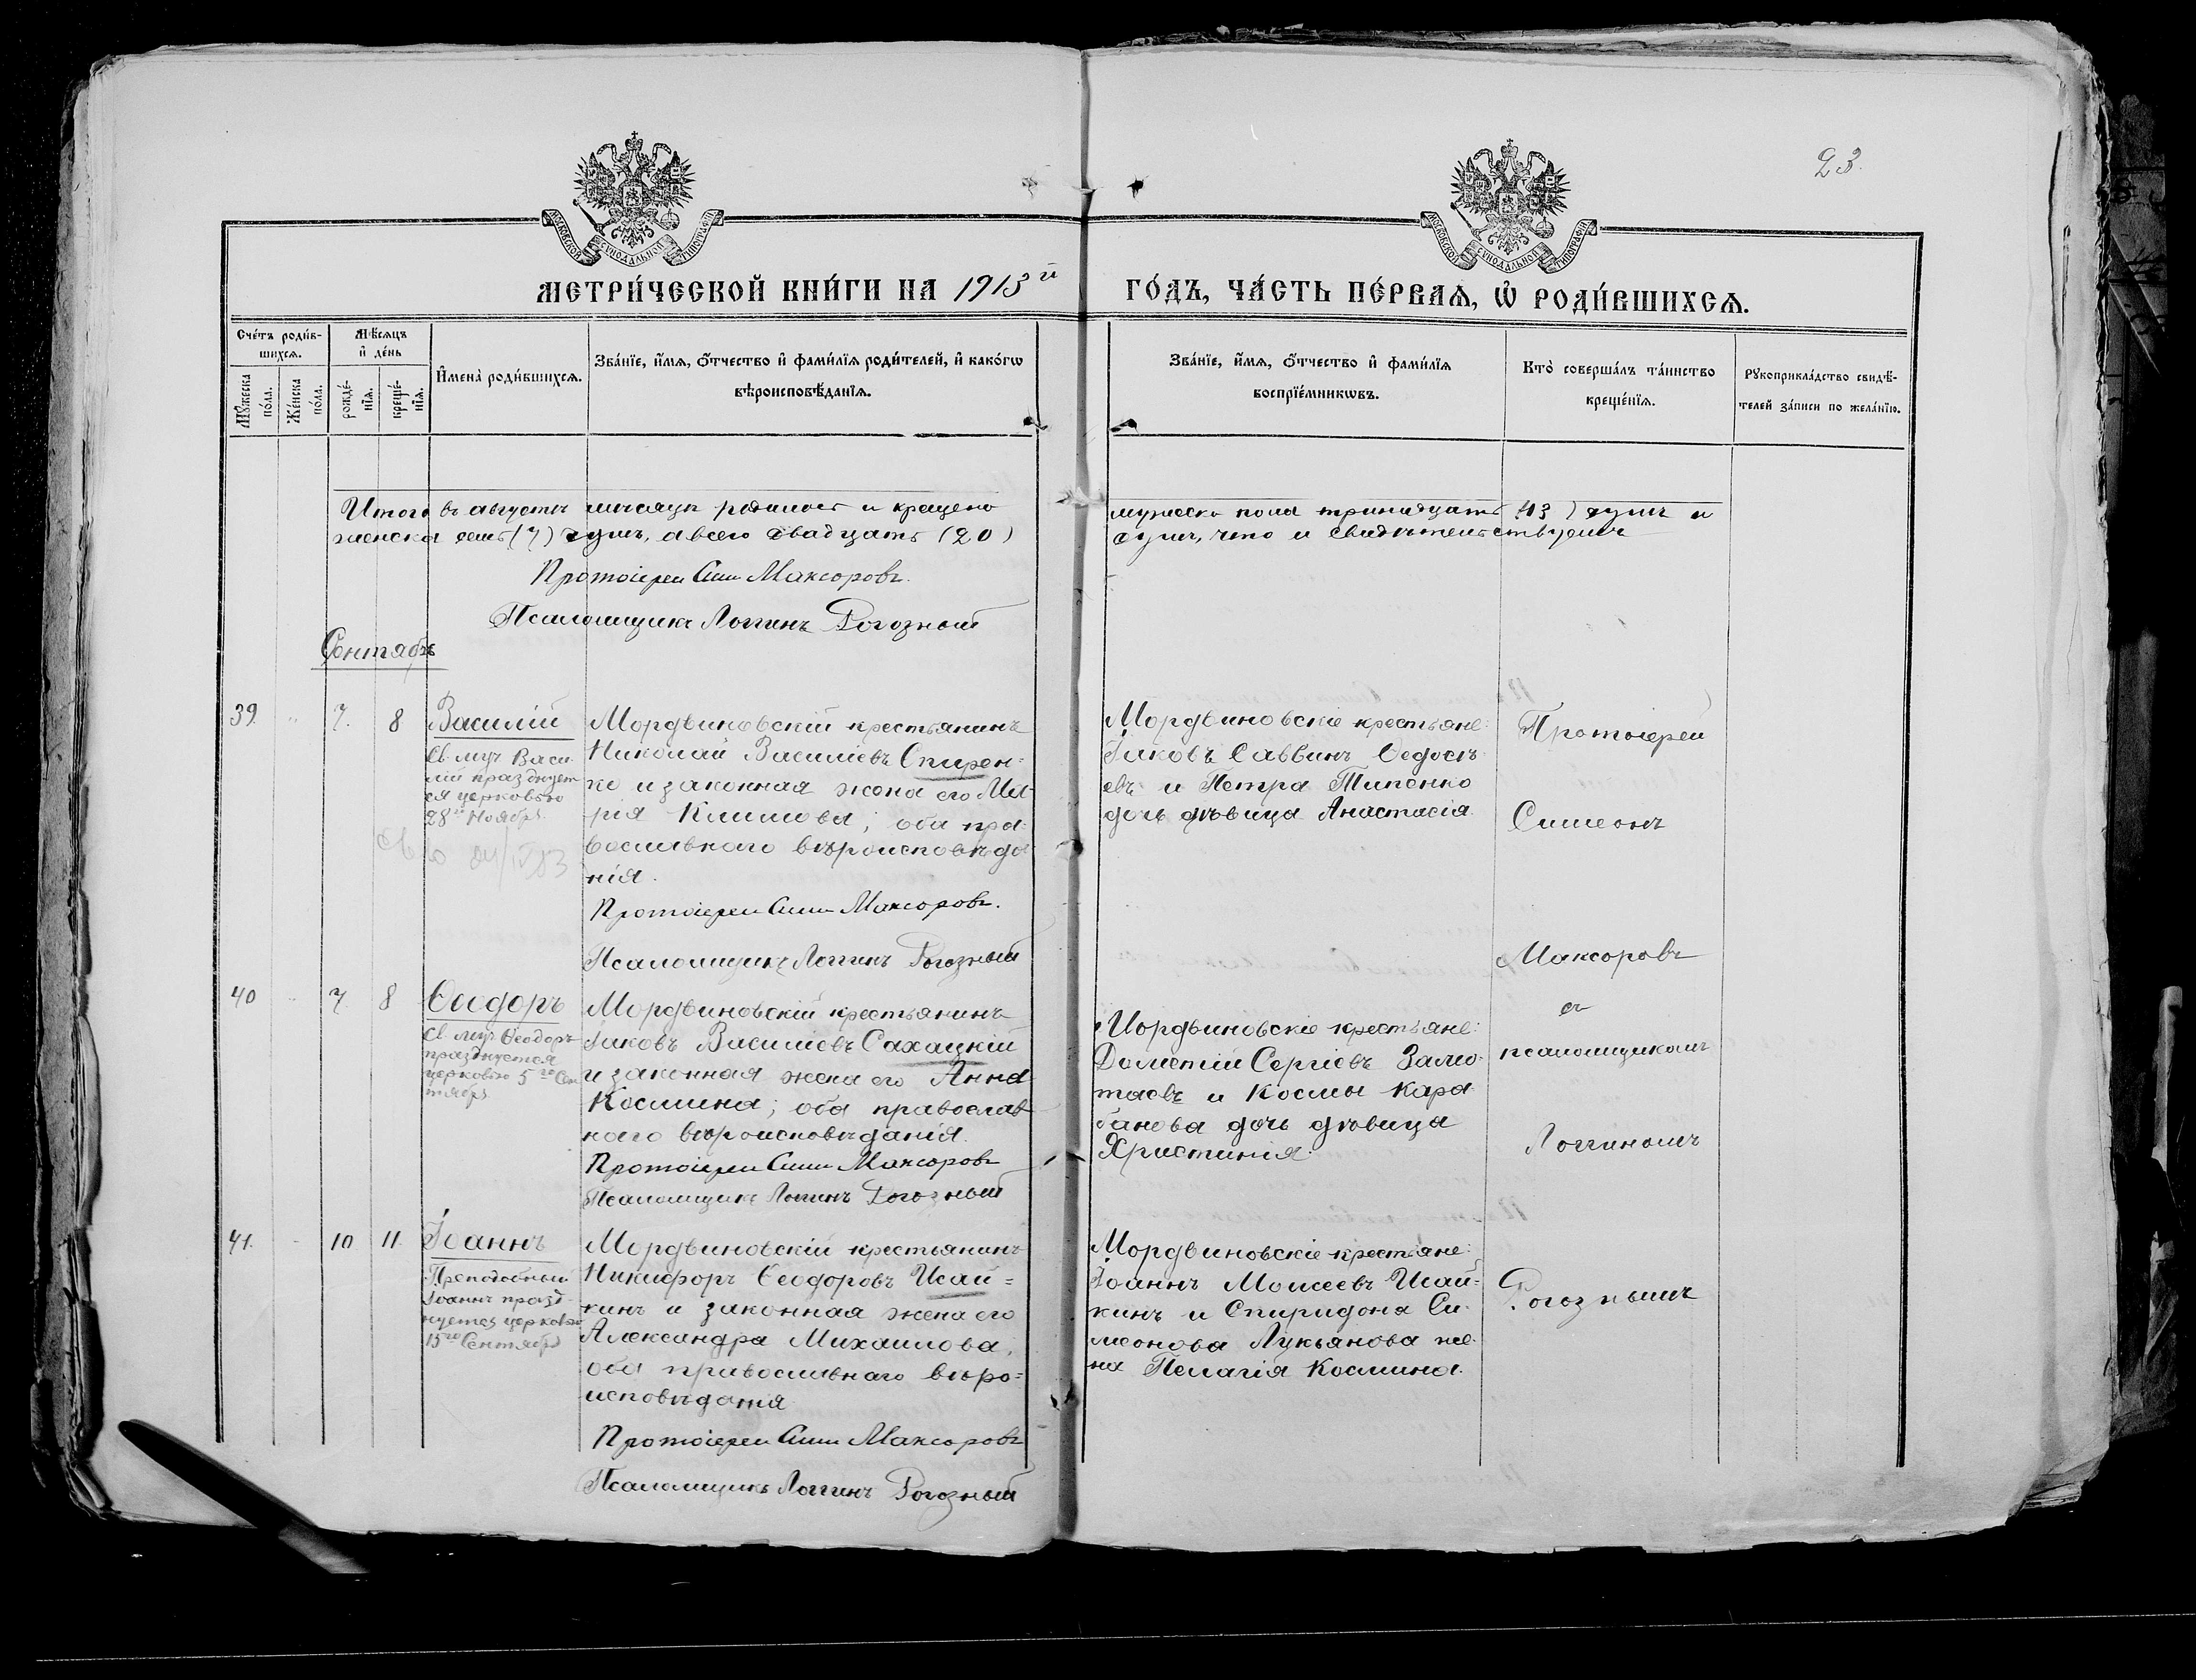 23.
МОСКОВСКОЙ СѴНОДАЛЬНОЙ ТИПОГРАФІИ
МОСКОВСКОЙ СѴНОДАЛЬНОЙ ТИПОГРАФІИ
МЕТРИ́ЧЕСКОЙ КНИ́ГИ НА 1913й
ГО́ДЪ, ЧА́СТЬ ПЕ́РВАѦ, Ѡ҆ РОДИ́ВШИХСѦ.
Сче́тъ роди́в-
шихсѧ.
Мѣ́сѧцъ
и҆ де́нь
Мꙋ́жеска
по́ла.
Же́нска
по́ла.
рожде́-
нїѧ.
креще́-
нїѧ.
И҆мена̀ роди́вшихсѧ.
Зва́нїе, и҆́мѧ, ѻ҆́тчество и҆ фами́лїѧ роди́телей, и҆ како́гѡ
вѣроисповѣ́данїѧ.
Зва́нїе, и҆́мѧ, ѻ҆́тчество и҆ фами́лїѧ
воспрїе́мникѡвъ.
Кто̀ соверша́лъ та́инство
креще́нїѧ.
Рꙋкоприкла́дство свидѣ́-
телей за́писи по жела́нїю.
Итого въ августѣ мѣсяцѣ родилось и крещено
мужеска пола тринадцать (13) душъ и
женска семь (7) душъ, а всего двадцать (20)
душъ, что и свидѣтельствуемъ
Протоіерей Сим. Максоровъ.
Псаломщикъ Логгинъ Рогозный
Сентябрь
39. " 7. 8 Василій
Св. муч Васи-
лій празднует
ся церковью
28го Ноября.
Мордвиновскій крестьянинъ
Николай Василіевъ Спирен-
ко и законная жена его Ма-
рія Климова; оба пра-
вославнаго вѣроисповѣда-
нія.
Протоіерей Сим Максоровъ.
Псаломщикъ Логгинъ Рогозный
Мордвиновскіе крестьяне:
Іаковъ Саввинъ Ѳедосѣ-
евъ и Петра Типенко
дочь дѣвица Анастасія.
Протоіерей
Симеонъ
Максоровъ
съ
псаломщикомъ
Логгиномъ
Рогознымъ
40 7. 8 Ѳеодоръ
Св. муч. Ѳеодоръ
празднуется
церковью 5го Сен
тября.
Мордвиновскій крестьянинъ
Іаковъ Василіевъ Сахацкій
и законная жена его Анна
Космина; оба православ
наго вѣроисповѣданія.
Протоіерей Сим Максоровъ
Псаломщикъ Логгинъ Рогозный
Мордвиновскіе крестьяне:
Дометій Сергіевъ Зало-
таевъ и Космы Кара-
банова дочь дѣвица
Христинія.
41. 10 11. Іоаннъ
Преподобный
Іоаннъ празд-
нуется церковью
15го Сентября
Мордвиновскій крестьянинъ
Никифоръ Ѳеодоровъ Исай-
кинъ и законная жена его
Александра Михаилова;
оба православнаго вѣро-
исповѣданія
Протоіерей Сим Максоровъ
Псаломщикъ Логгинъ Рогозный
Мордвиновскіе крестьяне:
Іоаннъ Моисеевъ Исай-
кинъ и Спиридона Си-
меонова Лукьянова же-
на Пелагія Космина.